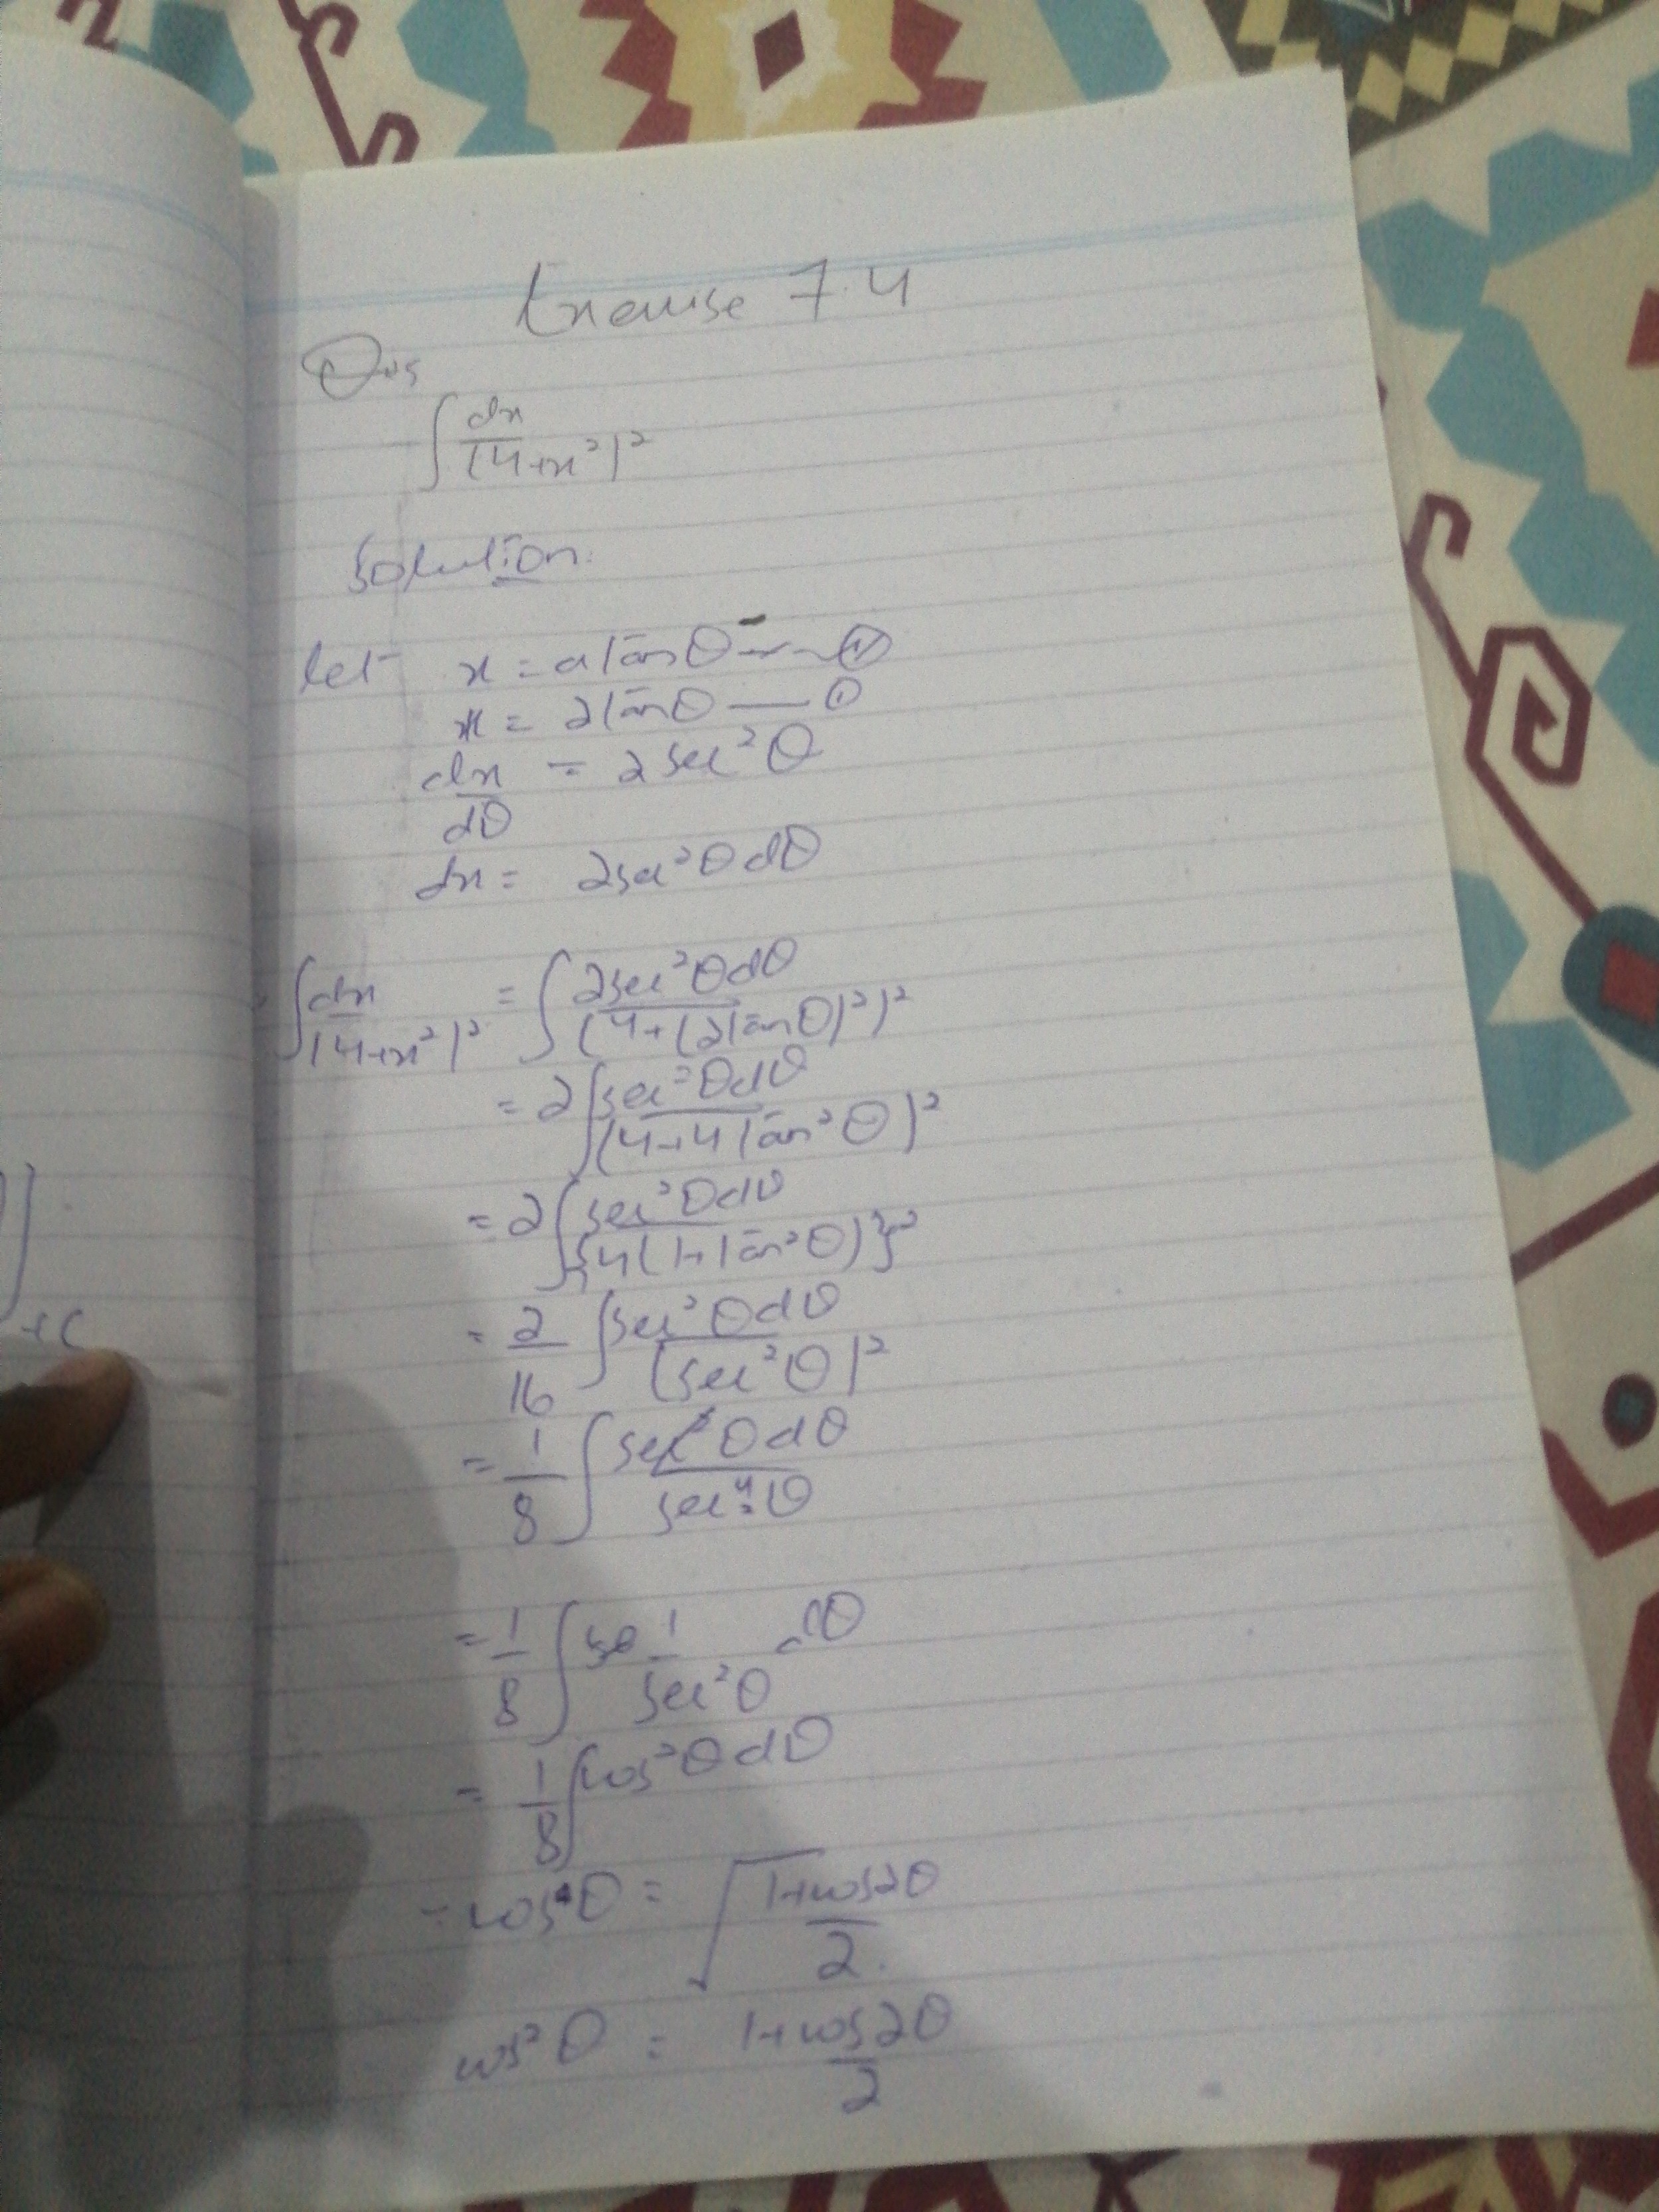 Exercise 7.4
Qus
∫ dx / (4+x²)²
Solution:
let x = a tanθ
x = 2tanθ — ①
dx/dθ = 2sec²θ
dx = 2sec²θdθ
∫ dx / (4+x²)² = ∫ 2sec²θdθ / (4+(2tanθ)²)²
= 2∫ sec²θdθ / (4+4tan²θ)²
= 2∫ sec²θdθ / {4(1+tan²θ)}²
= 2/16 ∫ sec²θdθ / (sec²θ)²
= 1/8 ∫ sec²θdθ / sec⁴θ
= 1/8 ∫ 1/sec²θ dθ
= 1/8 ∫cos²θdθ
cosθ = √(1+cos2θ / 2)
cos²θ = 1+cos2θ / 2
]
+c